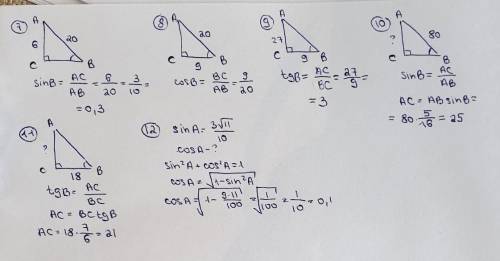 7
A
6
20
C
B
sinB = AC/AB = 6/20 = 3/10 =
= 0,3
8
A
20
C
9
B
cosB = BC/AB = 9/20
9
A
27
C
9
B
tgB = AC/BC = 27/9 =
= 3
10
A
?
80
C
B
sinB = AC/AB
AC = AB sinB =
= 80 · 5/16 = 25
11
A
?
C
18
B
tgB = AC/BC
AC = BC tgB
AC = 18 · 7/6 = 21
12
sinA = 3√11/10
cosA - ?
sin²A + cos²A = 1
cosA = √(1 - sin²A)
cosA = √(1 - 9·11/100) = √(1/100) = 1/10 = 0,1